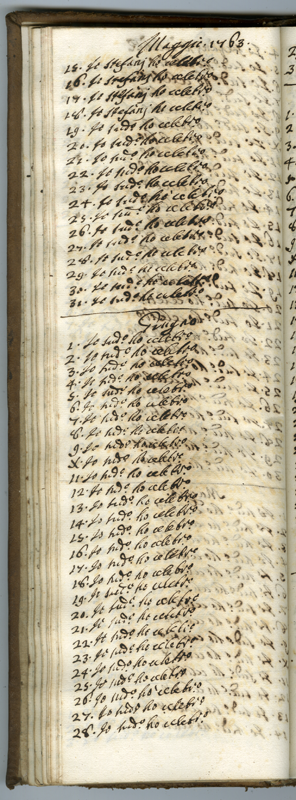 Maggio 1763.
15. Io Stefanj ho celebro
16. Io Stefanj ho celebro
17. Io Stefanj ho celebro
18. Io Stefanj ho celebro
19. Io sudo ho celebro
20. Io sudo ho celebro
21. Io sudo ho celebro
22. Io sudo ho celebro
23. Io sudo ho celebro
24. Io sudo ho celebro
25. Io sudo ho celebro
26. Io sudo ho celebro
27. Io sudo ho celebro
28. Io sudo ho celebro
29. Io sudo ho celebro
30. Io sudo ho celebro
31. Io sudo ho celebro
Giugno
1. Io sudo ho celebro
2. Io sudo ho celebro
3. Io sudo ho celebro
4. Io sudo ho celebro
5. Io sudo ho celebro
6. Io sudo ho celebro
7. Io sudo ho celebro
8. Io sudo ho celebro
9. Io sudo ho celebro
X. Io sudo ho celebro
11. Io sudo ho celebro
12. Io sudo ho celebro
13. Io sudo ho celebro
14. Io sudo ho celebro
15. Io sudo ho celebro
16. Io sudo ho celebro
17. Io sudo ho celebro
18. Io sudo ho celebro
19. Io sudo ho celebro
20. Io sudo ho celebro
21. Io sudo ho celebro
22. Io sudo ho celebro
23. Io sudo ho celebro
24. Io sudo ho celebro
25. Io sudo ho celebro
26. Io sudo ho celebro
27. Io sudo ho celebro
28. Io sudo ho celebro